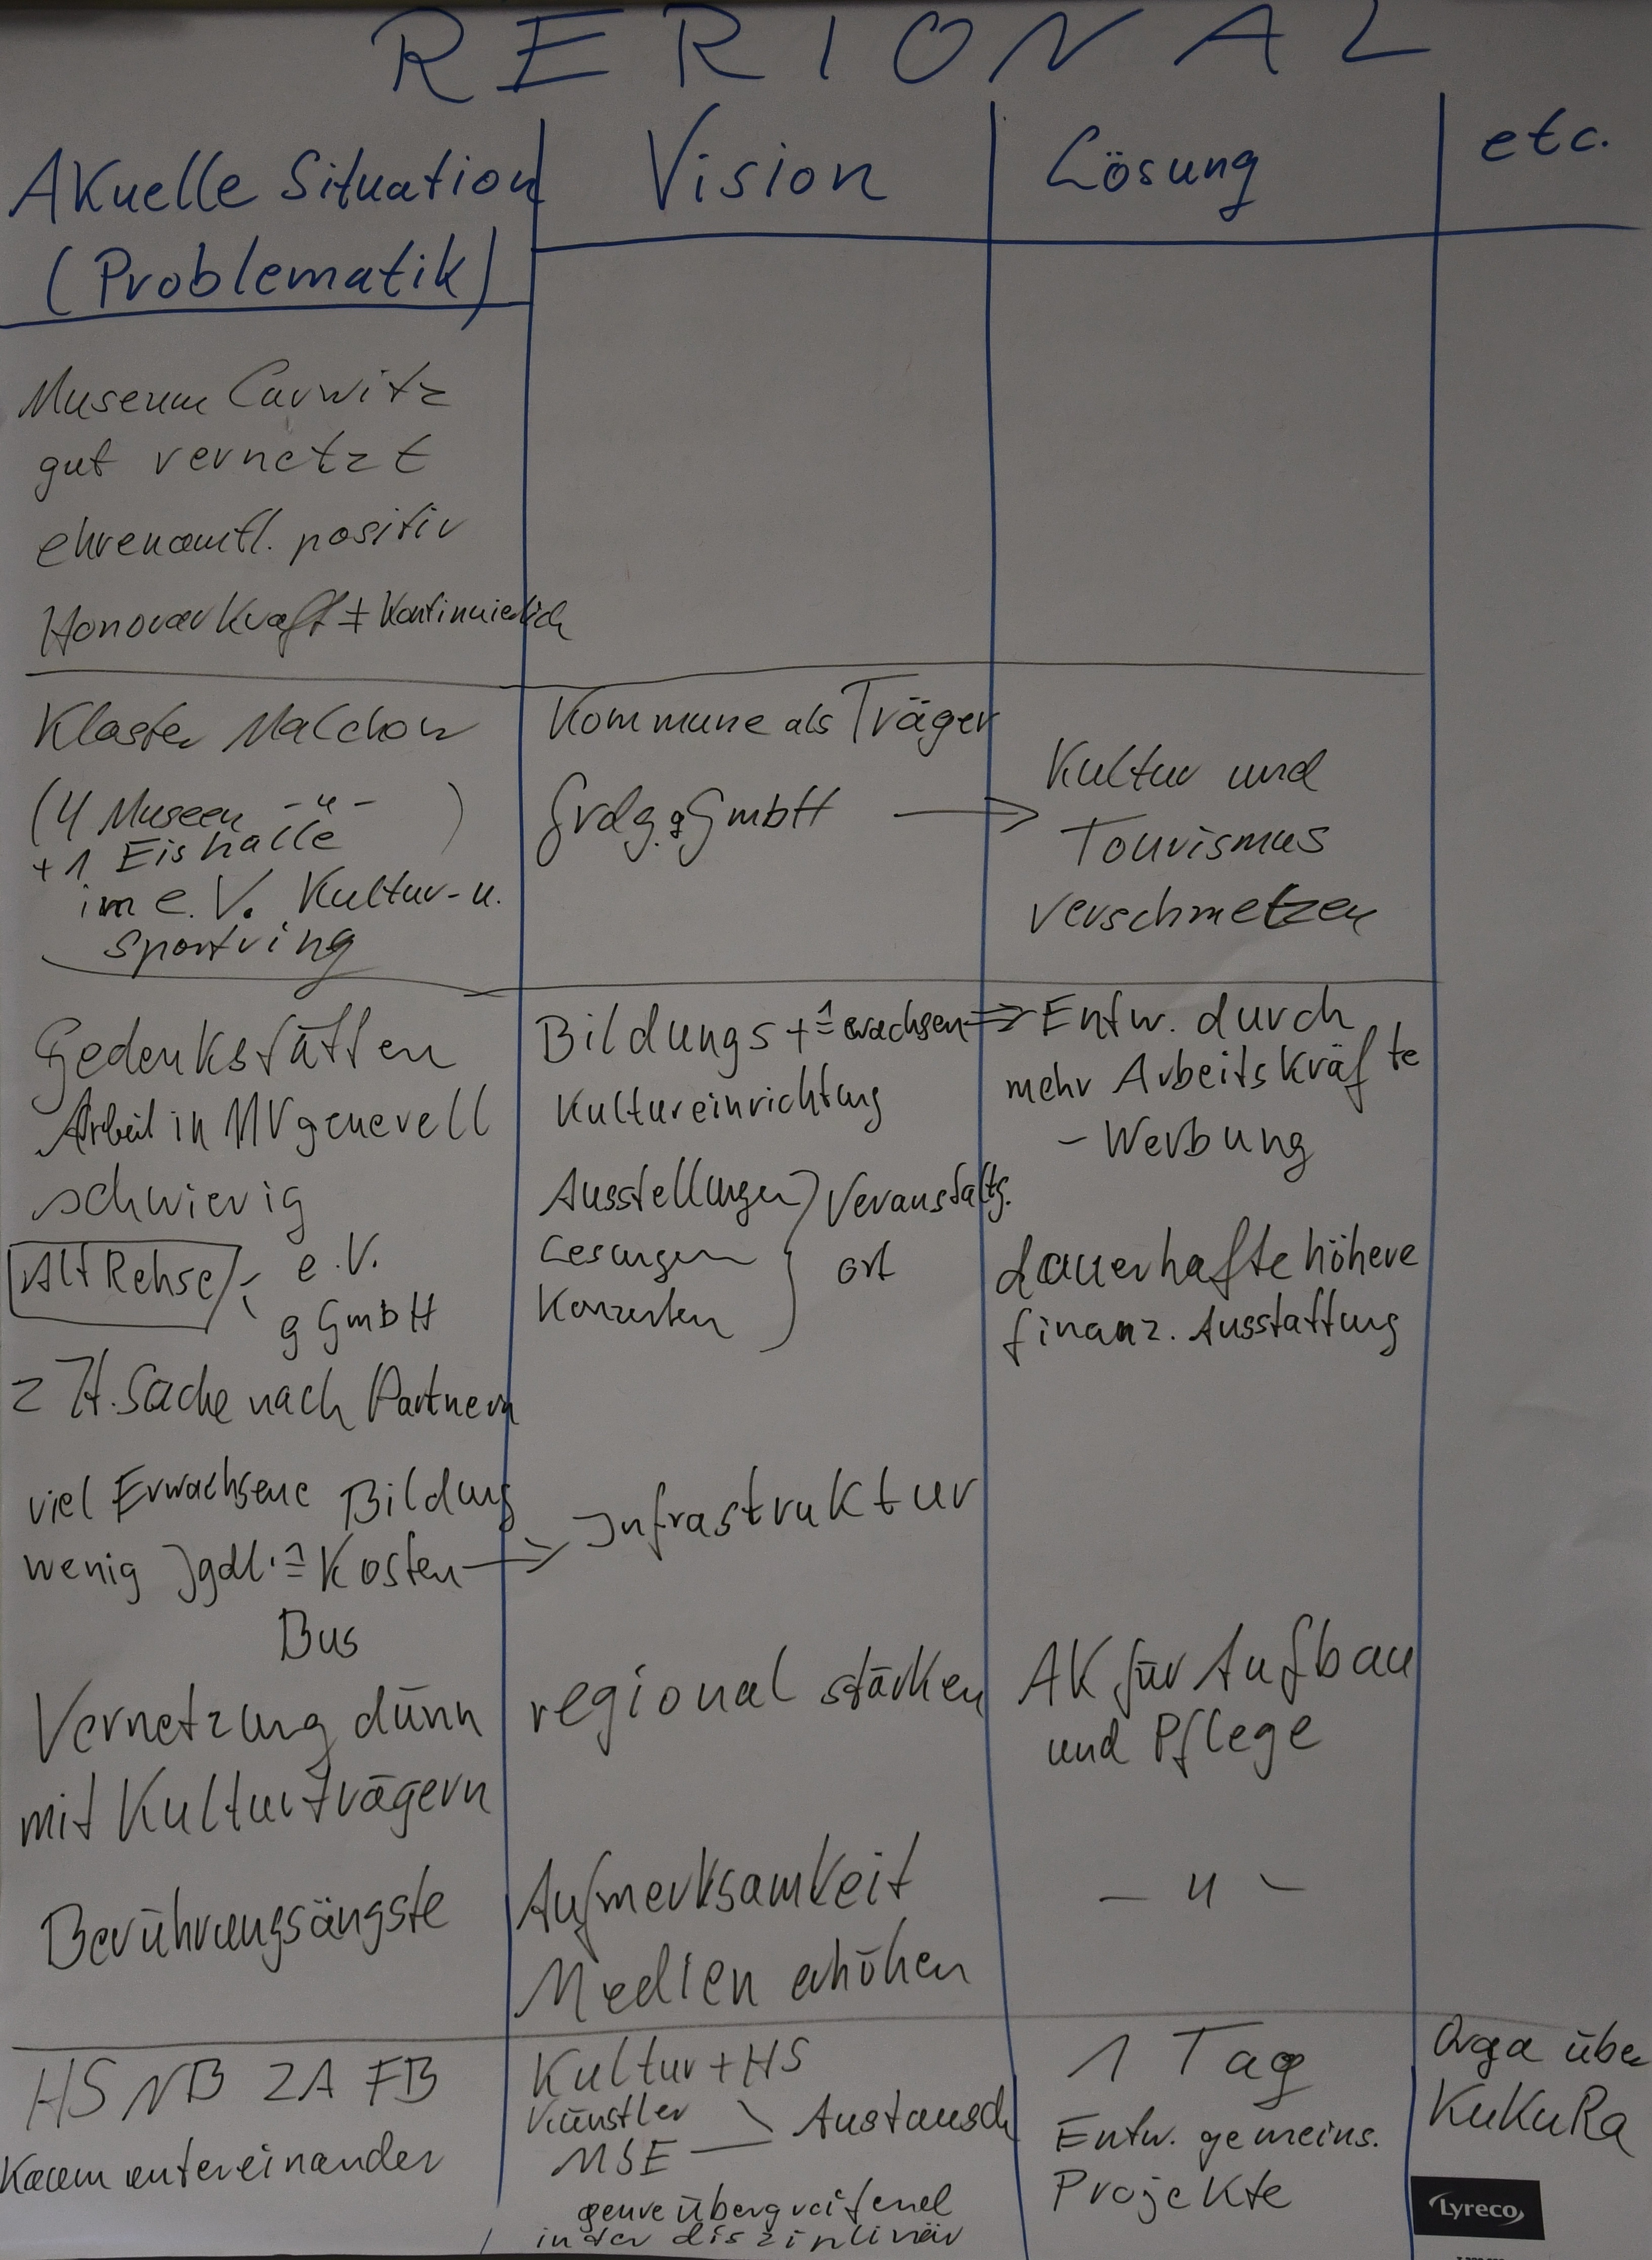 RERIONAL
AKuelle Situation
(Problematik)
Vision
Lösung
etc.
Museum Carwitz
gut vernetzt
ehrenamtl. positiv
Honorarkraft ≠ kontinuierlich
Kloster Malchow
(4 Museen -"- )
+ 1 Eishalle
im e.V. Kultur- u.
Sportring
Kommune als Träger
Grdg. gGmbH →
Kultur und
Tourismus
verschmelzen
Gedenkstätten
Arbeit in MV generell
schwierig
Alt Rehse
e.V.
gGmbH
z.Zt. Suche nach Partnern
viel Erwachsene Bildung
wenig Jgdl. ≙ Kosten →
Bus
Vernetzung dünn
mit Kulturträgern
Berührungsängste
Bildungs + ≙ erwachsen ⇒
Kultureinrichtung
Ausstellungen
Lesungen
Konzerten
} Veranstaltg.
ort
Infrastruktur
regional stärken
Aufmerksamkeit
Medien erhöhen
Entw. durch
mehr Arbeitskräfte
- Werbung
dauerhafte höhere
finanz. Ausstattung
AK für Aufbau
und Pflege
- " -
HS NB ZA FB
kaum untereinander
Kultur + HS
Künstler
MSE — Austausch
genreübergreifend
interdisziplinär
1 Tag
Entw. gemeins.
Projekte
Orga über
KuKuRa
Lyreco